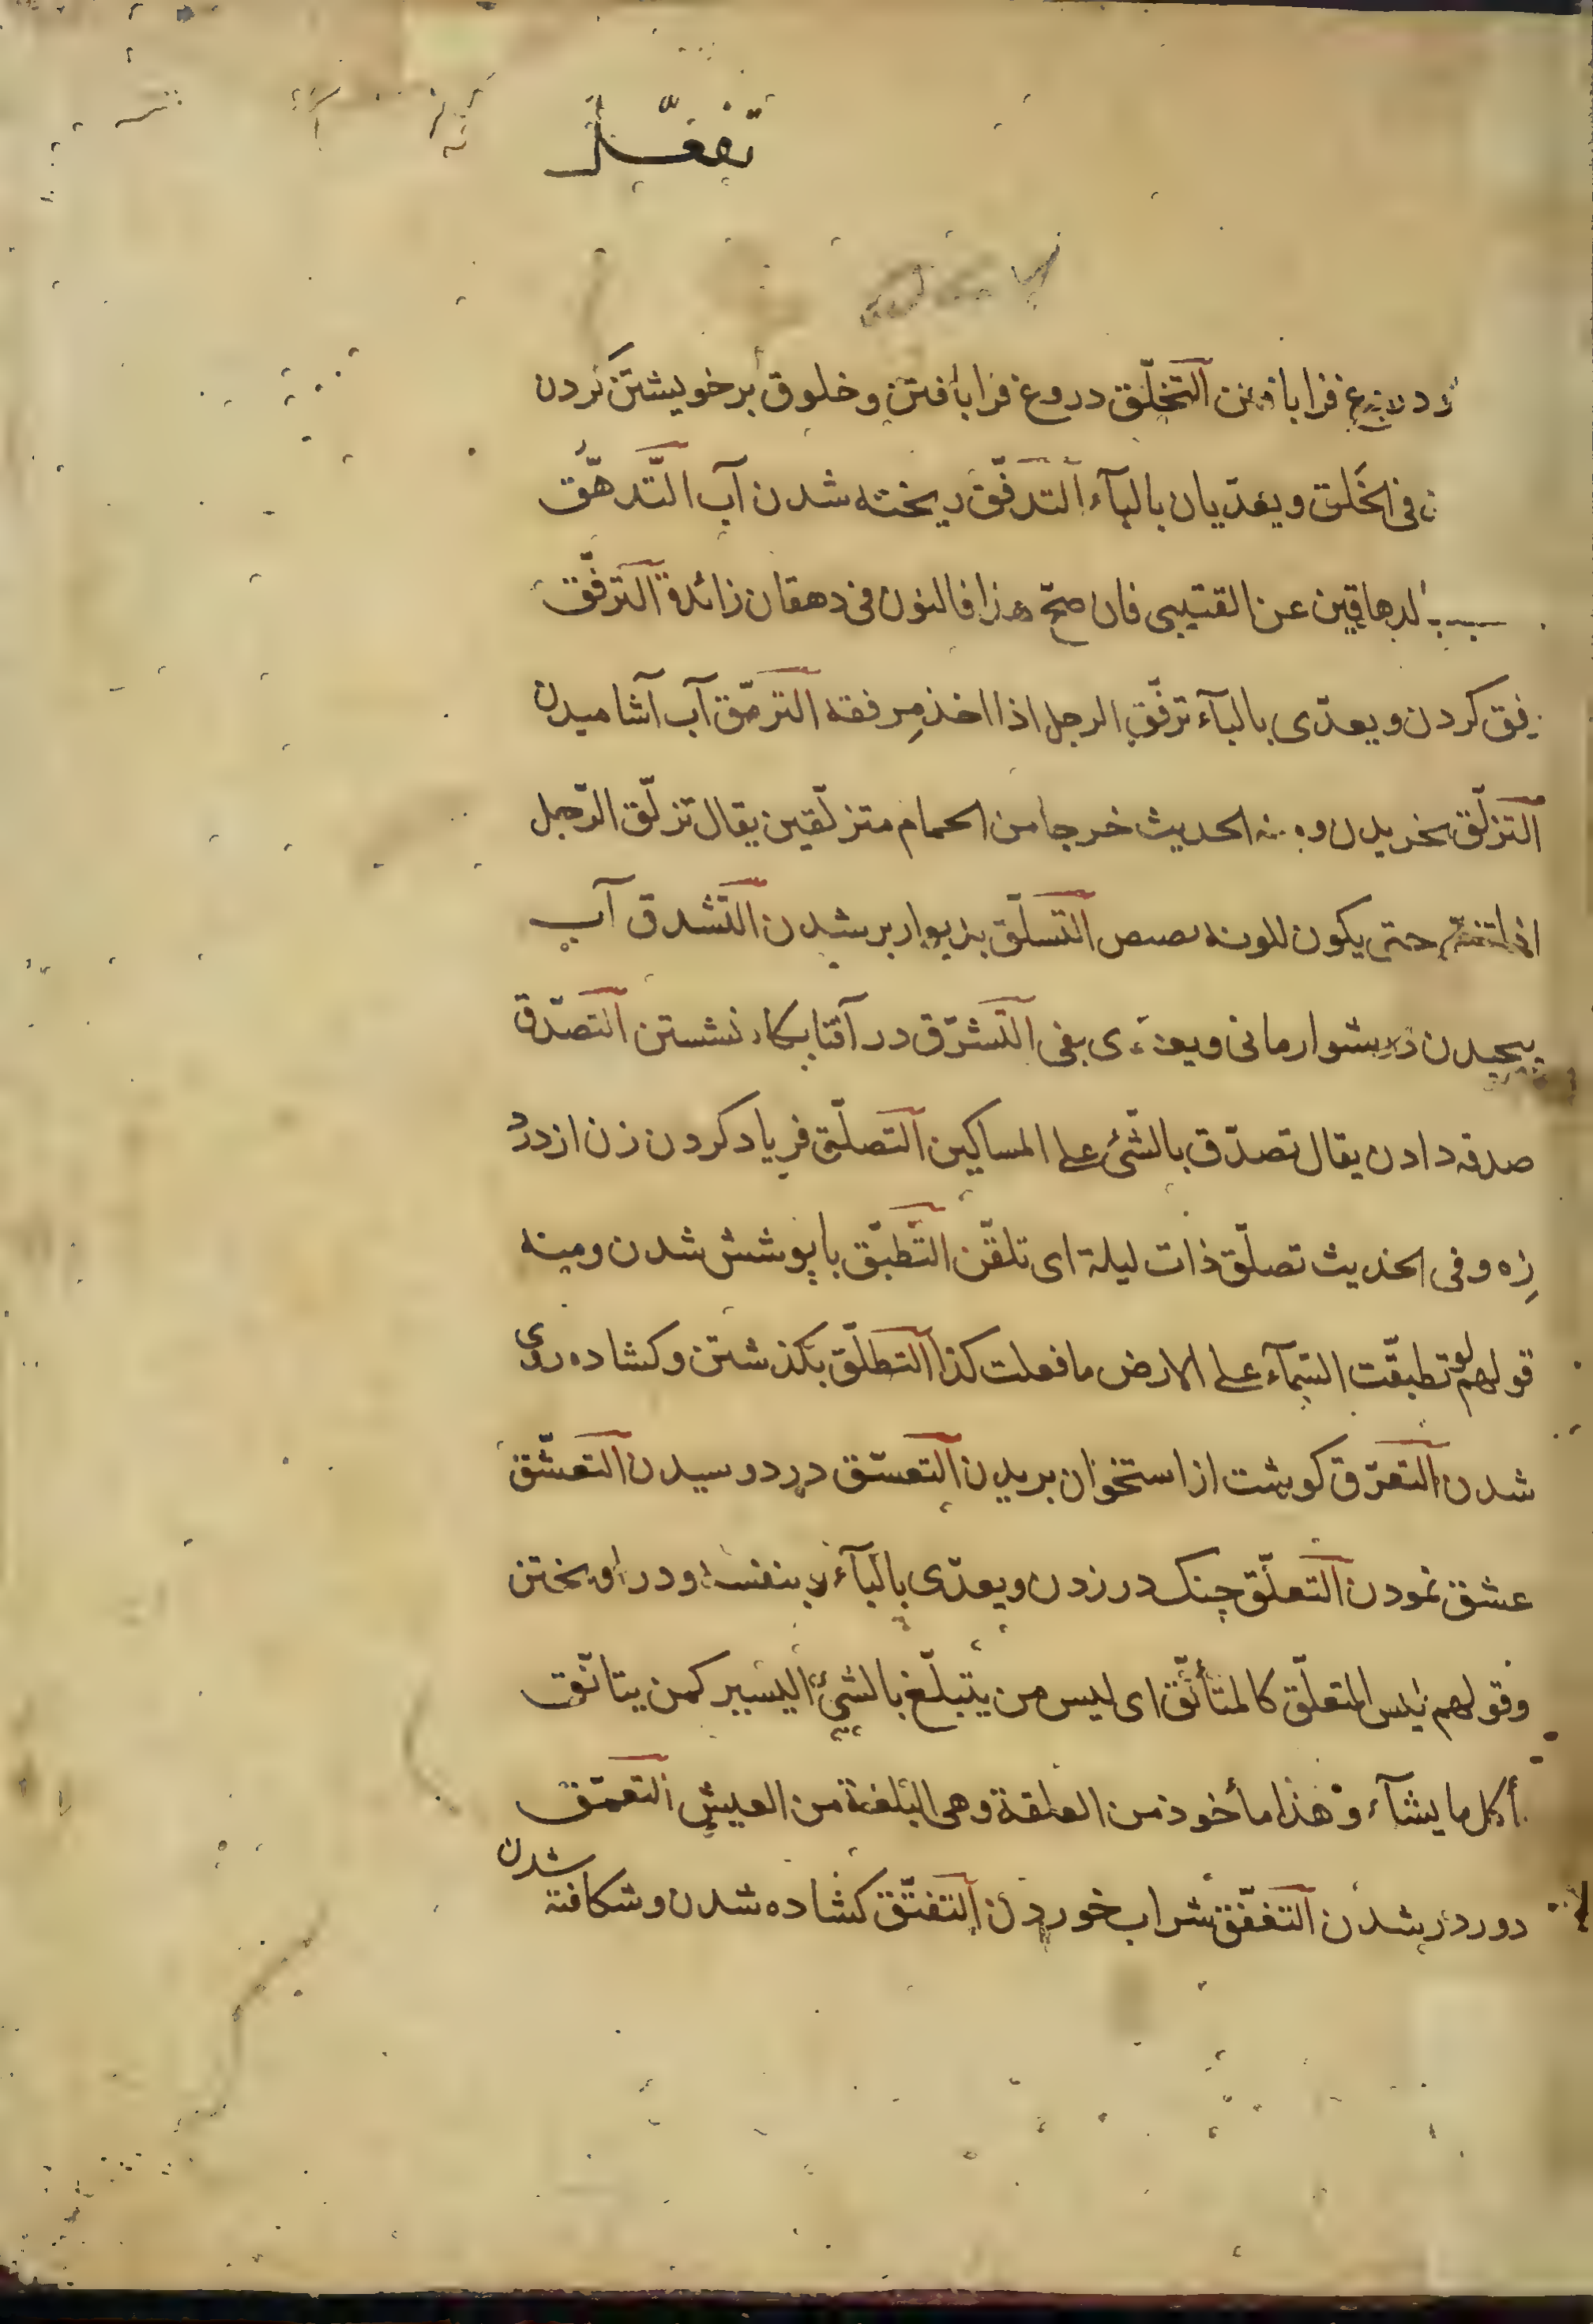 تفعّل
دروغ فرا بافتن التخلّق دروغ فرا بافتن و خلوق بر خویشتن کردن
فی الخَلق و یعدّیان بالبآء التدفّق ریخته شدن آب التّدهّق
الدهاقین عن القتیبی فان صحّ هذا فالنون فی دهقان زائدة الترفّق
رفق کردن و یعدّی بالبآء ترفّق الرجل اذا اخذ مِرفقه الترمّق آب آشامیدن
التزلّق بخزیدن و منه الحدیث خرجا من الحمام متزلّقین یقال تزلّق الرّجل
اذا تنعّم حتی یکون للونه بصیص التسلّق بدیوار بر شدن التشدق آب
پیچیدن دشوار مانی و یعدّی بفی التشرّق در آفتاب کاه نشستن التصدّق
صدقه دادن یقال تصدّق بالشّئ علی المساکین التصلّق فریاد کردن زن از درد
زه و فی الحدیث تصلّق ذات لیلة ای تلقّن التّطبّق با پوشش شدن و منه
قولهم لو تطبقّت السّمآء علی الارض ما فعلت کذا التطلّق بگذشتن و کشاده روی
شدن التعرّق کوشت از استخوان بریدن التعسّق در دوسیدن التعشّق
عشق نمودن التعلّق چنک در زدن و یعدّی بالبآء و بنفسه و در اویختن
و قولهم لیس المتعلّق کالمتأنّق ای لیس من یتبلّغ بالشئ الیسیر کمن یتانّق
یأکل ما یشآء و هذا مأخوذ من العلقة و هی البُلغة من العیش التعمّق
دور در شدن التغفّق شراب خوردن التفتّق کشاده شدن و شکافته شدن